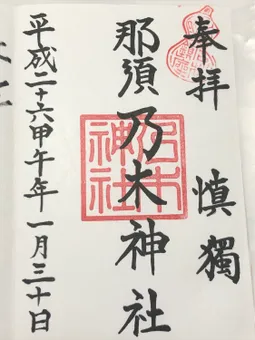 奉拝 慎獨
那須乃木神社
平成二十六甲午年一月三十日
乃木神社